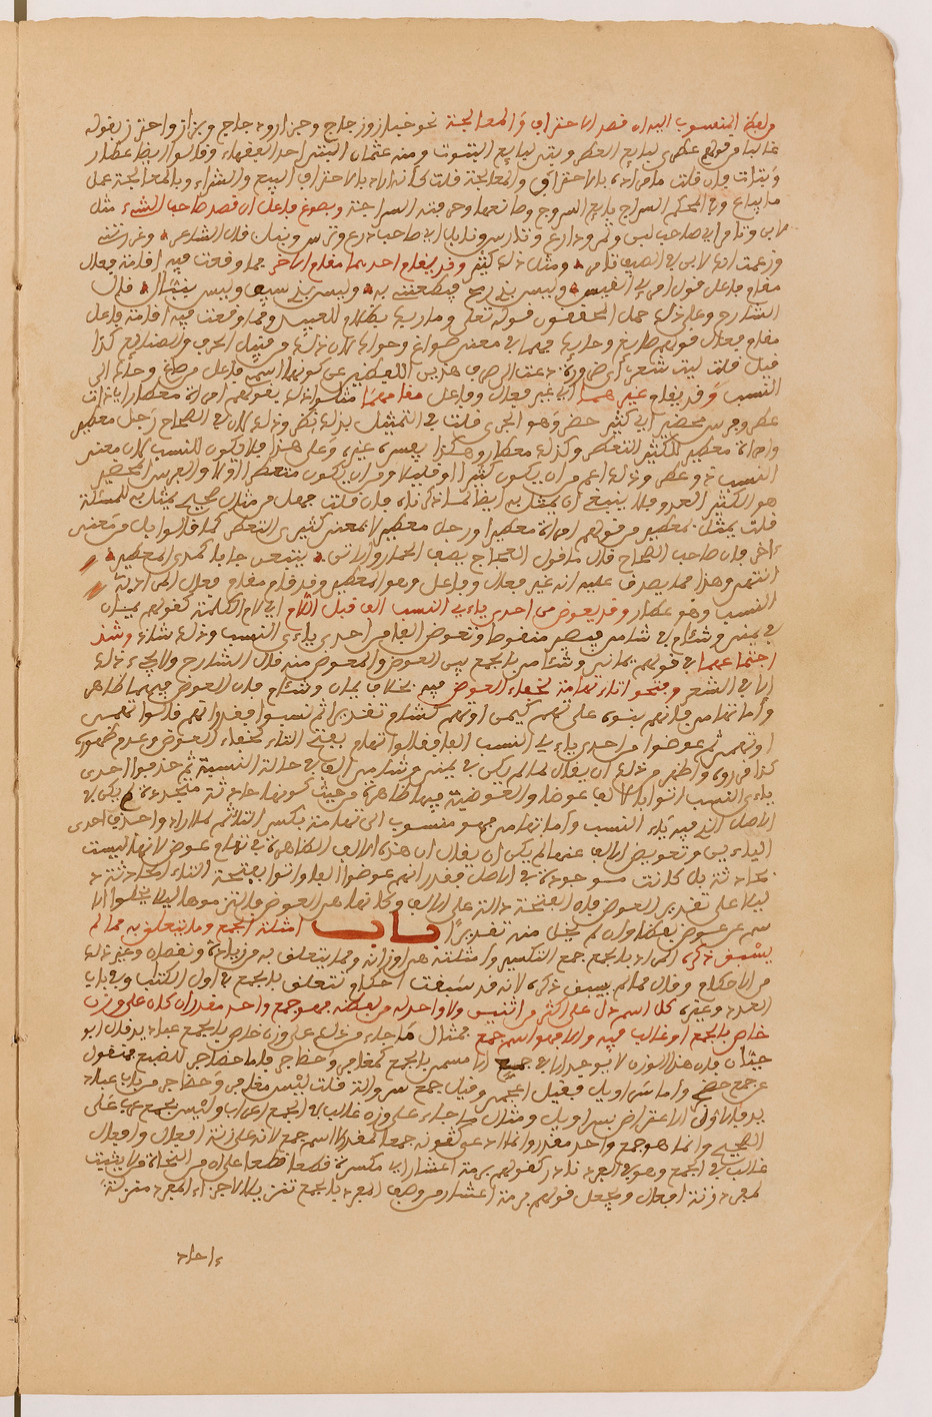 المنسوب اليه ان قصد الاحتراف والمعالجة نحو خباز وزجاج وجزار وبزاز واحترز بقوله
غالبا من قولهم عطري لبايع العطر وبتي لبايع البتوت ومنه عثمان البتي احد الفقهاء وقالوا ايضا عطار
وبتات فان قلت ما مراده بالاحتراف والمعالجة قلت كأنه اراد بالاحتراف البيع والشراء وبالمعالجة عمل
ما يباع وفي المحكم السراج بايع السروج وصانعها وحرفته السراجة ويصوغ فاعل ان قصد صاحب الشيء مثل
لابن وتامر اي صاحب لبن وتمر ودارع وتارس ونابل اي صاحب درع وترس ونبل قال الشاعر وغررتني
وزعمت انك لابن في الصيف تامر ومثل ذلك كثير وقد يقام احدهما مقام الاخر فمما وقعت فيه اقامة فعال
مقام فاعل قول امرئ القيس وليس بذي رمح فيطعنني به وليس بذي سيف وليس بنبال قال
الشارح وعلى ذلك حمل المحققون قوله تعلى وما ربك بظلام للعبيد ومما وقعت فيه اقامة فاعل
مقام فعال قولهم
النسب وقد يقام غيرهما اي غير فعال وفاعل مقامهما
عطر وفرس محضير اي كثير حضر وهو الجري قلت في التمثيل بذلك نظر وذلك لان في الصحاح رجل معطير
وامراة معطير للكثير التعطر وكذلك معطار وهكذا يفسره غيره وعلى هذا فلا يكون للنسب لان معنى
النسب ذو عطر وذلك اعم من ان يكون كثيرا او قليلا ومن ان يكون متعطرا او لا والفرس المحضير
هو الكثير العدو فلا ينبغي ان يمثل به ايضا لما ذكرناه فان قلت فهل من مثال صحيح يمثل به للمسئلة
قلت يمثل بمعطير من قولهم امراة معطير او رجل معطير لا بمعنى كثيري التعطر كما قالوا بل من معنى
ءاخر فان صاحب الصحاح قال ما قول العجاج يصف الحمار والاتن يتبعن جابا كمدق المعطير
انتهى وهذا مما يصدق عليه انه غير فعال وفاعل وهو المعطير وقد قام مقام فعال المراد به
النسب وهو عطار وقد يعوض من احدى ياءي النسب الف قبل اللام اي لام الكلمة كقولهم يمان
في يمني وشئام في شامي فيصير منقوصا وتعوض الفا من احدى ياءي النسب وذلك شاذ وشذ
اجتماعهما في قولهم يماني وشئامي بالجمع بين العوض والمعوض منه قال الشارح ولا يجيء ذلك
الا في الشعر وفتحوا تاء تهامة لخفاء العوض فيه بخلاف يمان وشئام فان العوض فيهما ظاهر
واما تهامي فانهم بنوه على تهم كيمن او تهم كشام تقديرا ثم نسبوا فقدروا انهم قالوا تهمي
او تهمي ثم عوضوا من احدى ياءي النسب الفا فقالوا تهام بفتح التاء لخفاء العوض وعدم ظهوره
كذا قرروه واظهر من ذلك ان يقال لما لم يكن في يمني وشامي الف في حالة النسبة ثم حذفوا احدى
ياءي النسب اتوا بالالف عوضا والعوضية فيها ظاهرة من حيث كونها حادثة متجددة لم يكن في
الاصل الذي فيه ياء النسب واما تهامي فهو منسوب الى تهامة بكسر التاء ثم لما ارادوا حذف احدى
الياءين وتعويض الالف عنها لم يكن ان يقال ان هذه الالف الظاهرة في تهام عوض لانها ليست
بحادثة بل كانت موجودة في الاصل فقدروا انهم عوضوا الفا واتوا بفتحة التاء الحادثة
ليلا على تقدير العوض فان الفتحة دالة على الالف وكانها هي العوض فالتزموها ليلا يخلوا الا
سم عن عوض لفظا وان لم يخل منه تقديرا باب امثلة الجمع وما يتعلق به مما لم
يسبق ذكره المراد بالجمع جمع التكسير وامثلته هي اوزانه ومما يتعلق به من زيادة ونقصان وغير ذلك
من الاحكام وقال مما لم يسبق ذكره لانه قد سبقت احكام تتعلق بالجمع في اول الكتاب وفي باب
العدد وغيره كل اسم دل على اكثر من اثنين ولا واحد له من لفظه فهو جمع واحد مقدر ان كان على وزن
خاص بالجمع او غالب فيه والا فهو اسم جمع فمثال ما جاء من ذلك على وزن خاص بالجمع عباديد قال ابو
حيان فان هذا الوزن لا يوجد الا في جمع الا ما سمي بالجمع كمعافر وحضاجر فاما حضاجر للضبع فمنقول
عن جمع حضجر واما سراويل فقيل اعجمي وقيل جمع سروالة قلت ليس معافر وحضاجر من باب عباد
يد فالاولى الاعتراض بسراويل ومثال ما جاء على وزن غالب في الجمع اعراب وليس بجمع عرب على
الصحيح وانما هو جمع واحد مقدر وانما ادعى كونه جمعا لمقدر لا اسم جمع لانه على زنة افعال وافعال
غالب في الجمع وهو في المفرد نادر كقولهم برمة اعشار اي مكسرة قطعا قطعا على ان من النحاة من لا يثبت
لمفرد زنة افعال ويجعل قولهم برمة اعشار من وصف المفرد بالجمع تنزيلا لاجزاء المفرد منزلة
ءاحاد